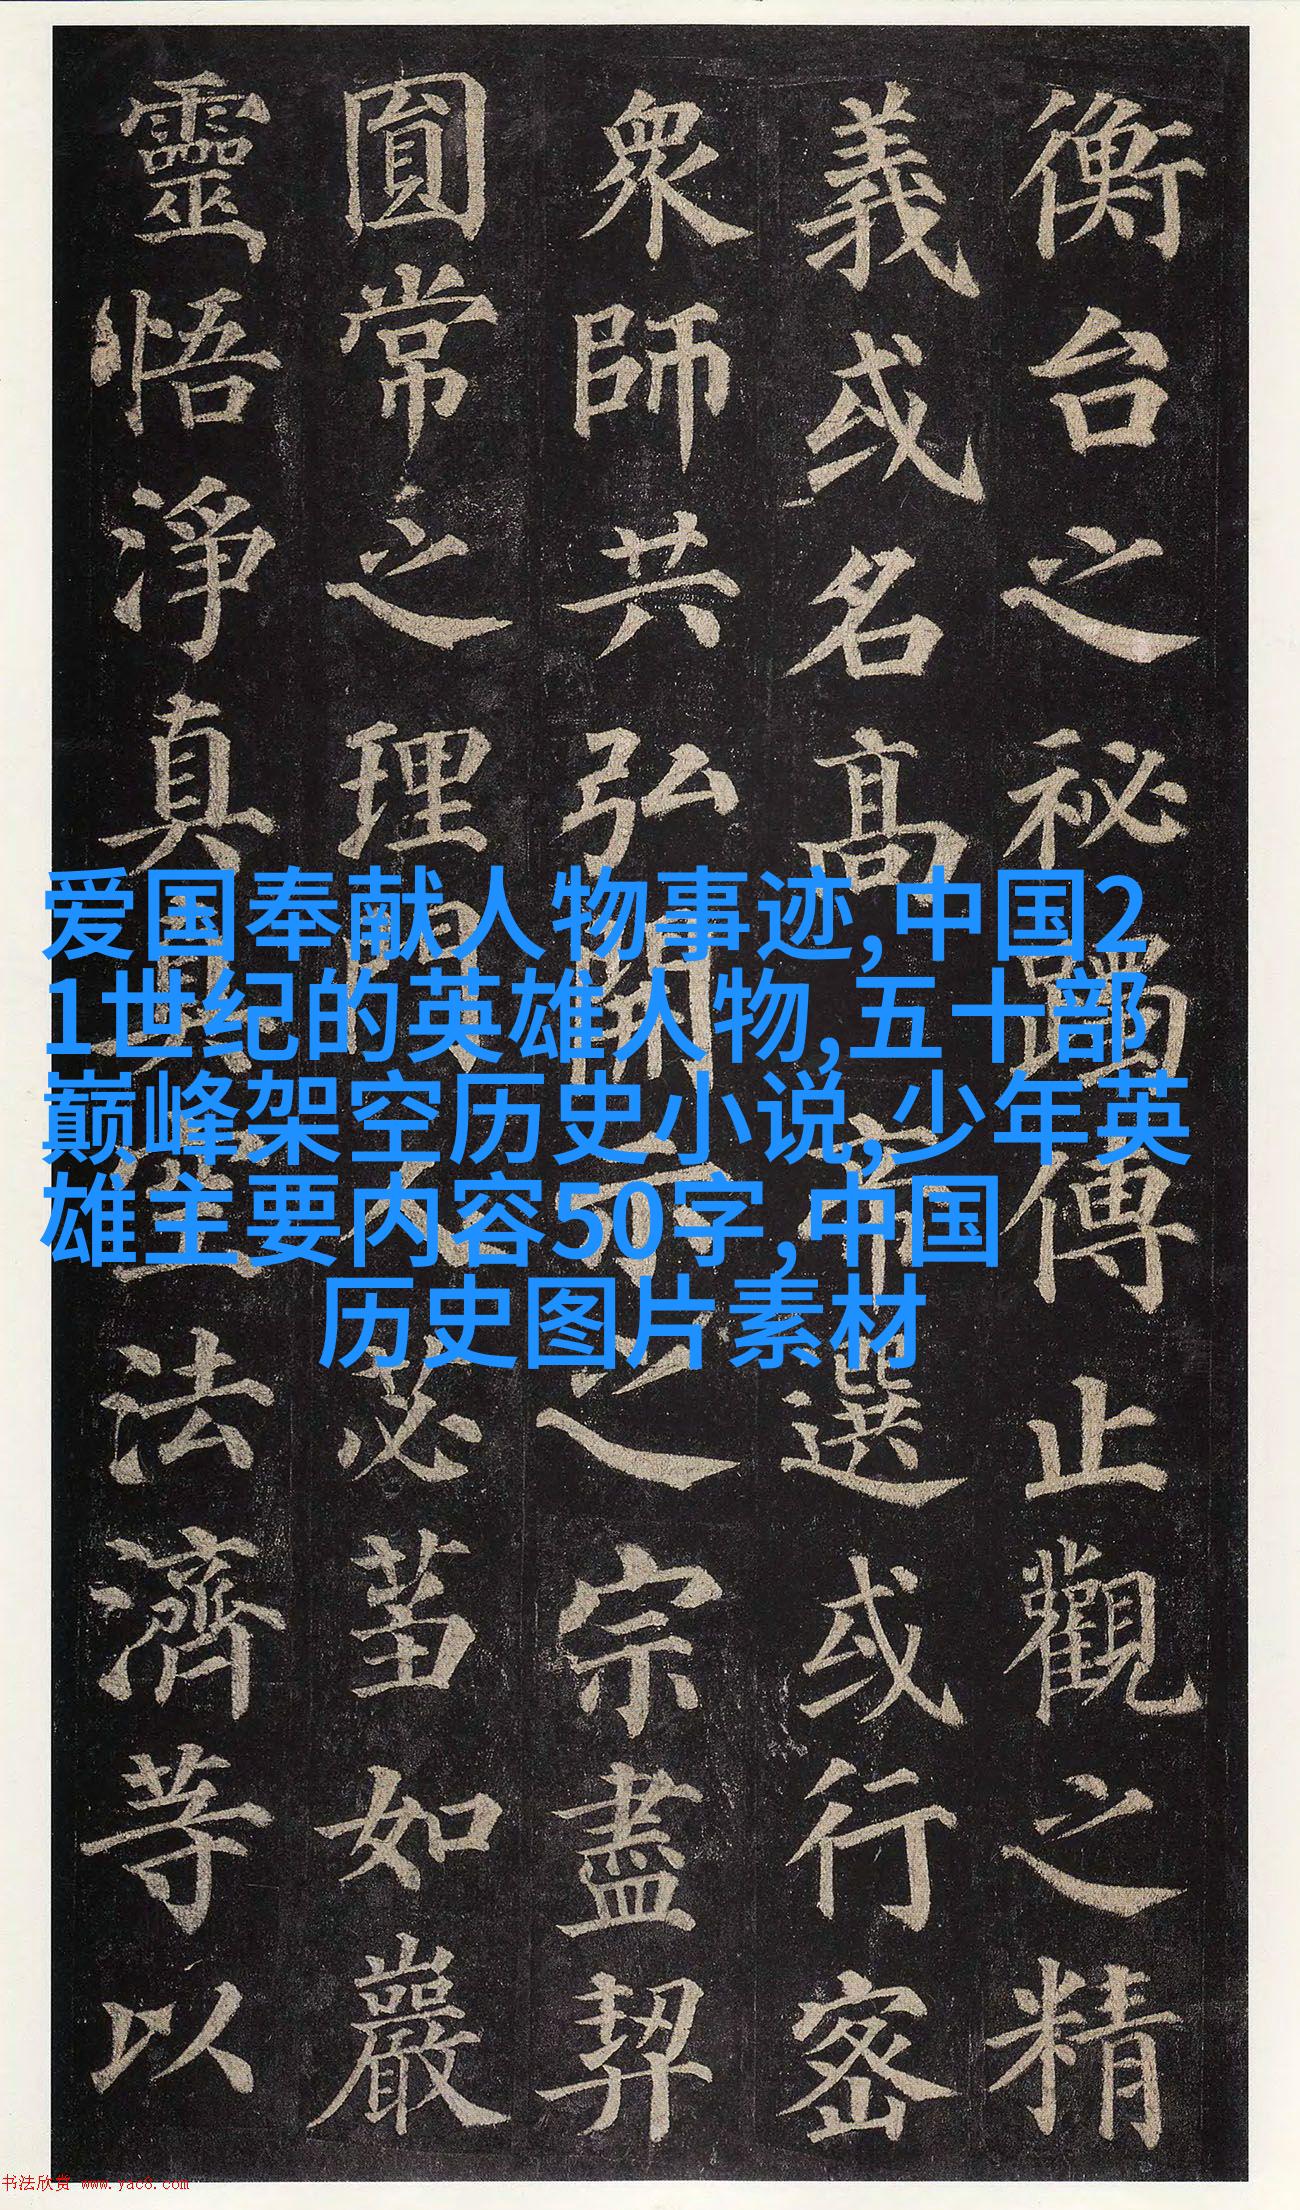 衡台之秘躅傳止觀之精
義或名高帝選或行密
衆師共弘開示之宗盡契
圓常之理門人苾芻如巖
靈悟淨真真空法濟等以
爱国奉献人物事迹,中国2
1世纪的英雄人物,五十部
巅峰架空历史小说,少年英
雄主要内容50字,中国
历史图片素材
书法欣赏 www.yac8.com